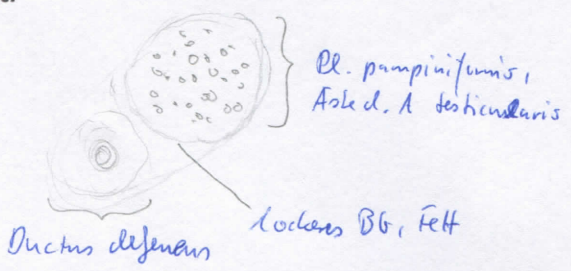 Pl. pampiniformis,
Äste d. A testicularis
lockeres BG, Fett
Ductus deferens